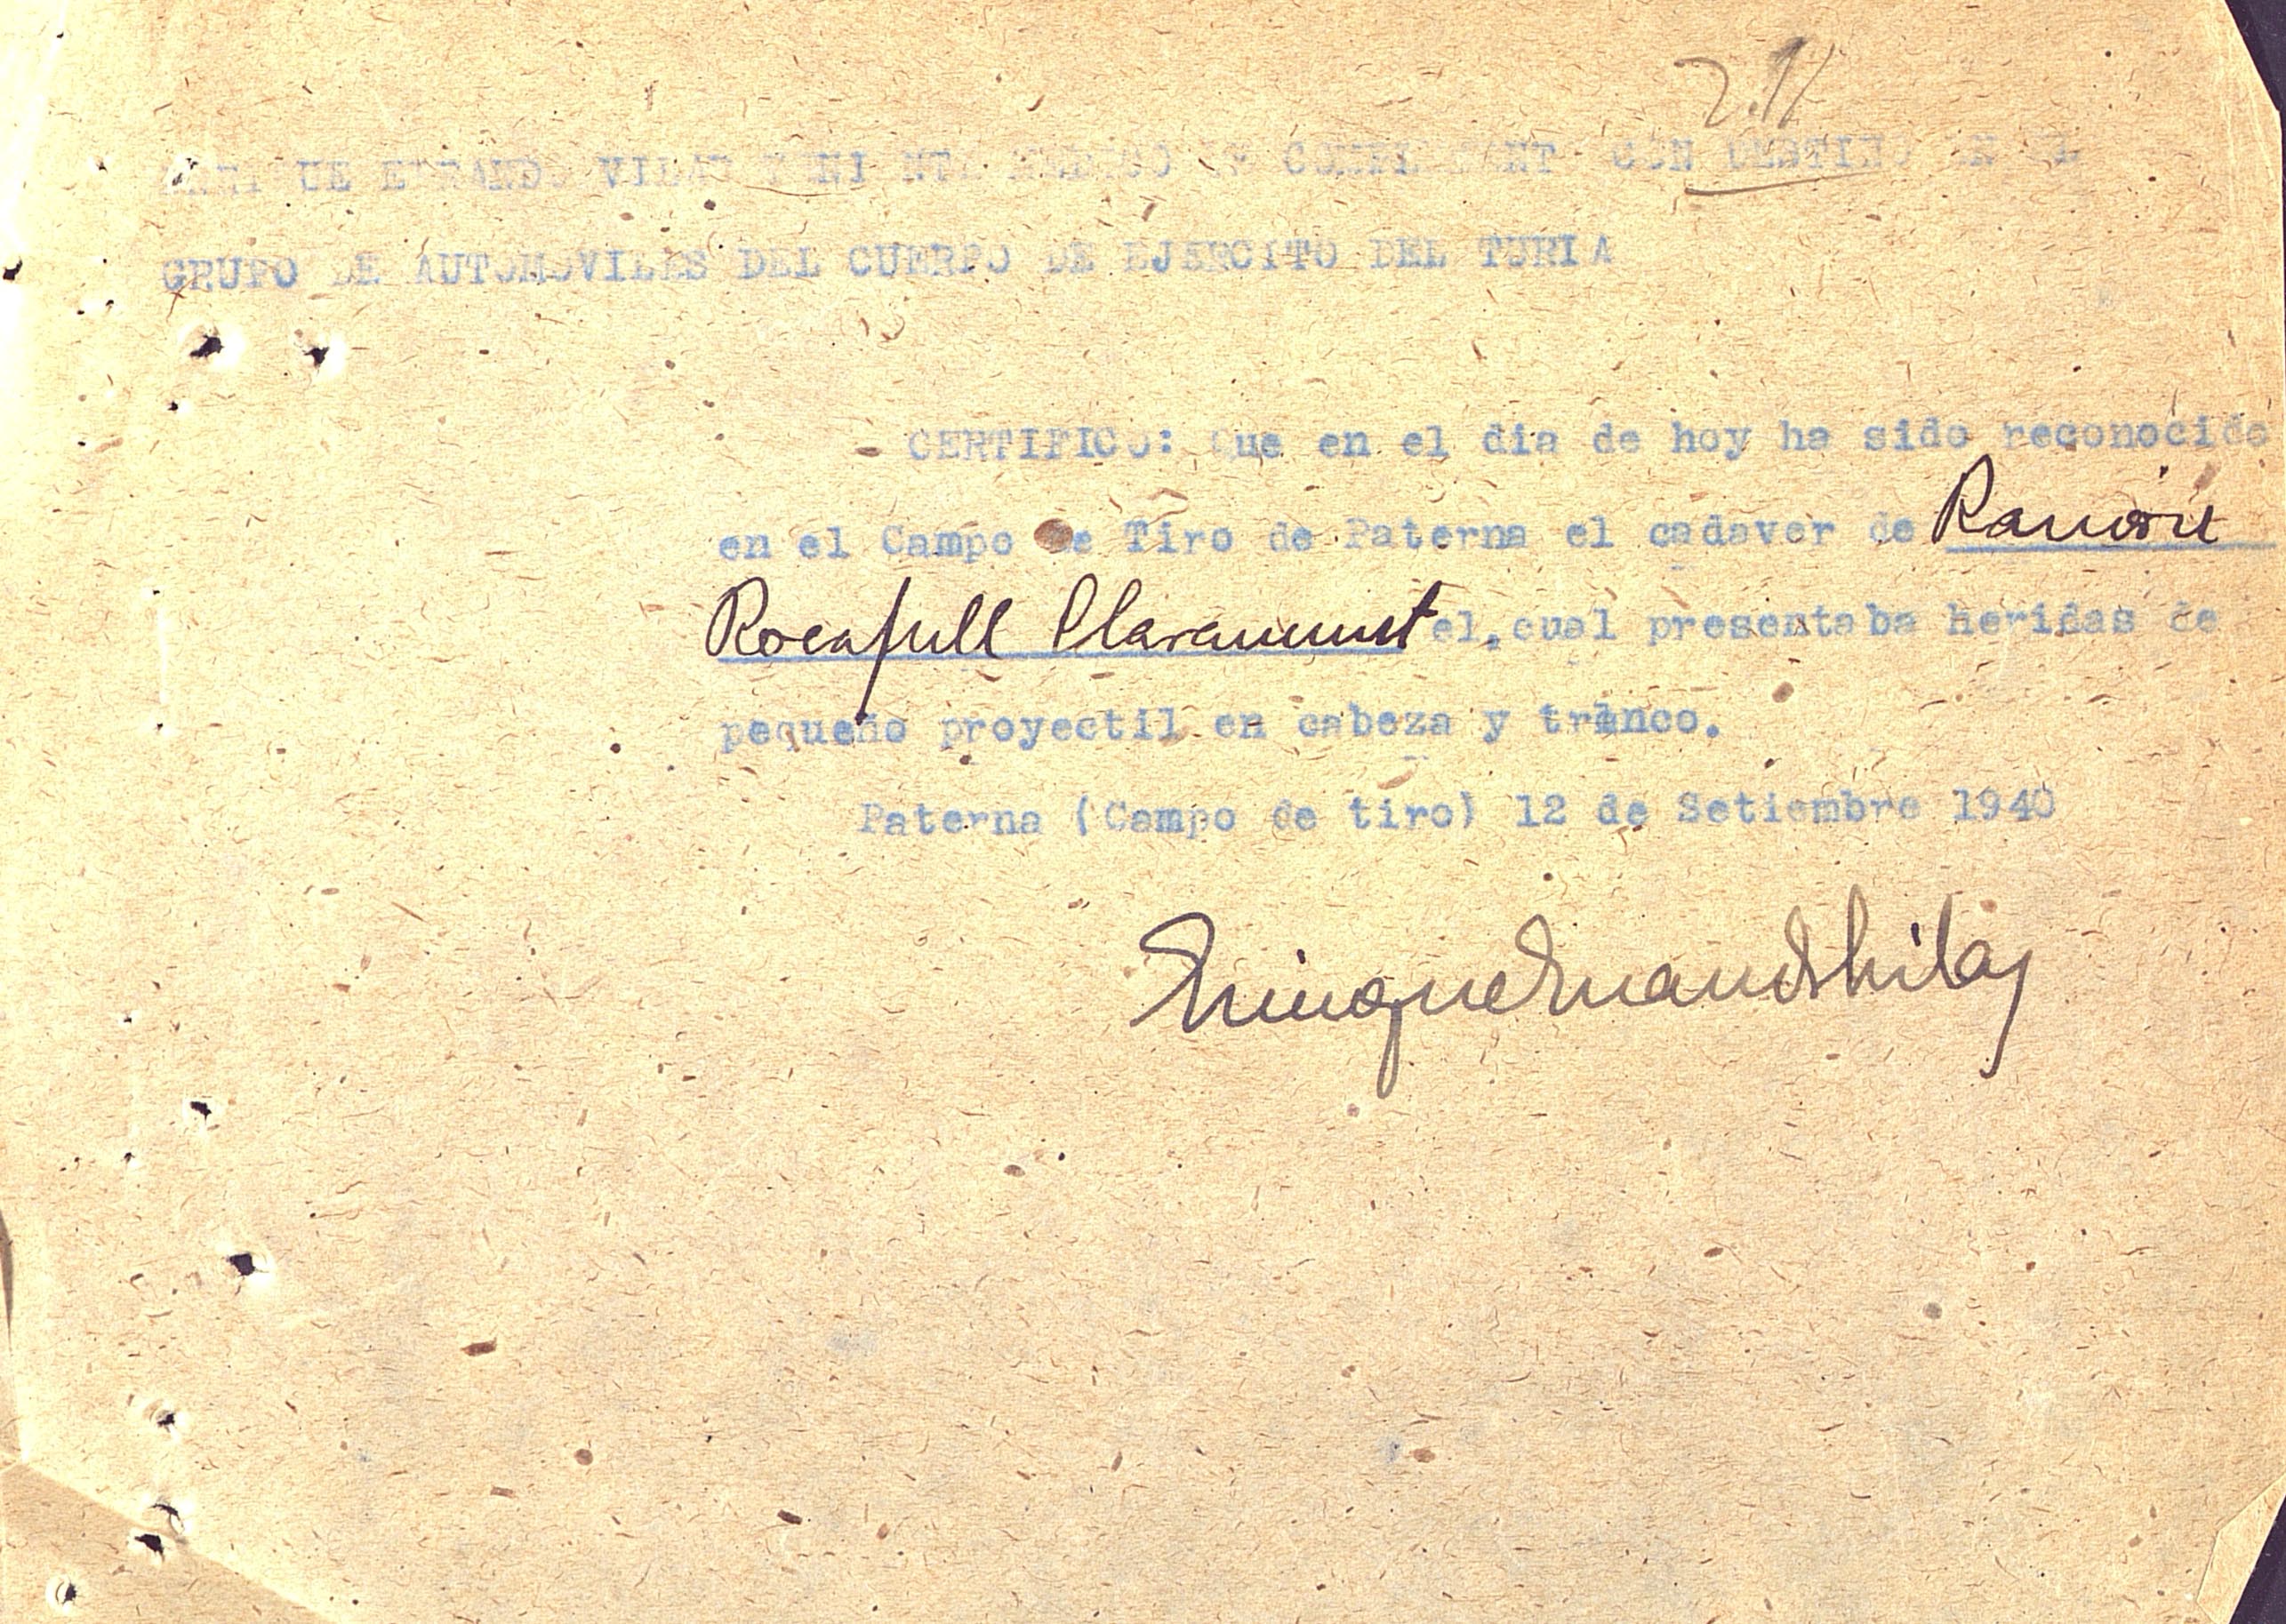 2.12
ENRIQUE ERRANDO VILAR TENIENTE MEDICO DE COMPLEMENTO CON DESTINO EN EL
GRUPO DE AUTOMOVILES DEL CUERPO DE EJERCITO DEL TURIA
CERTIFICO: Que en el dia de hoy ha sido reconocido
en el Campo de Tiro de Paterna el cadaver de Ramón
Rocafull Claramunt el, cual presentaba heridas de
pequeño proyectil en cabeza y tronco.
Paterna (Campo de tiro) 12 de Setiembre 1940
Enrique Errando Vilar